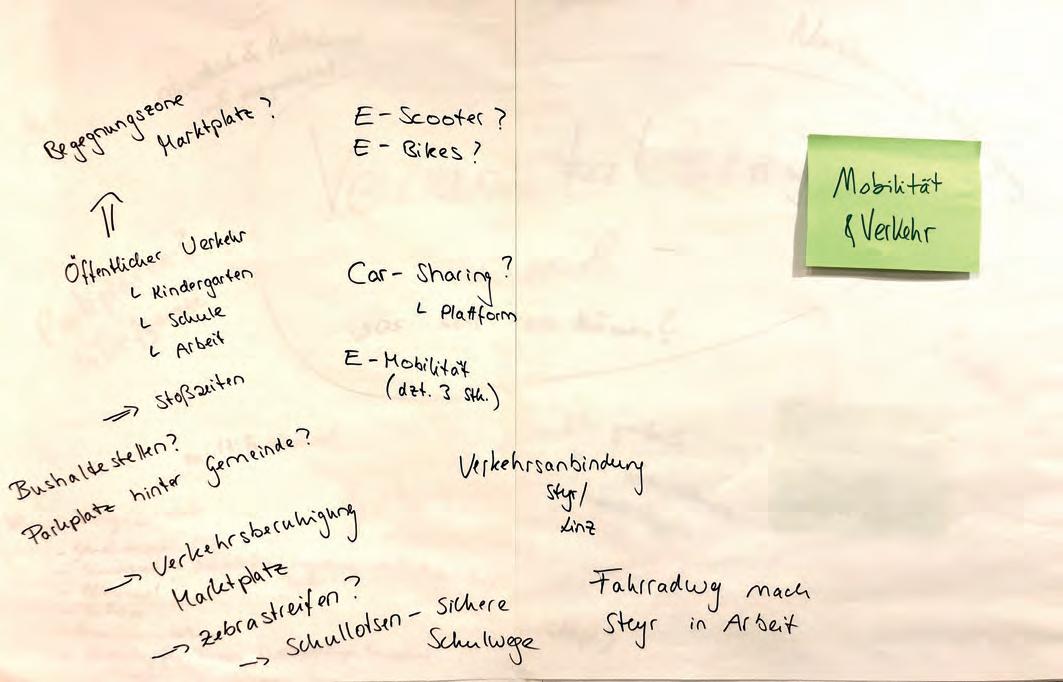 Begegnungszone
Marktplatz?
⇑
Öffentlicher Verkehr
└ Kindergarten
└ Schule
└ Arbeit
⇒ Stoßzeiten
Bushaltestellen?
Parkplatz hinter Gemeinde?
→ Verkehrsberuhigung
Marktplatz
→ Zebrastreifen?
→ Schullotsen – Sichere
Schulwege
E-Scooter?
E-Bikes?
Car-Sharing?
└ Plattform
E-Mobilität
(dzt. 3 Stk.)
Verkehrsanbindung
Styr/
Linz
Fahrradwg nach
Steyr in Arbeit
Mobilität
& Verkehr